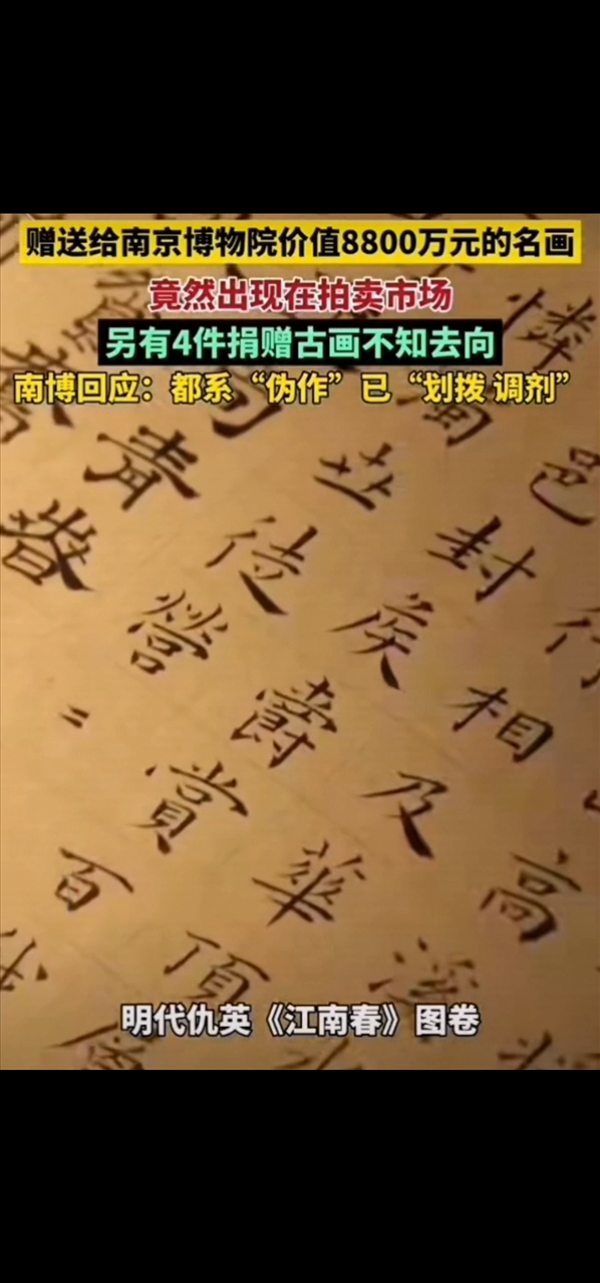 赠送给南京博物院价值8800万元的名画
竟然出现在拍卖市场
另有4件捐赠古画不知去向
南博回应：都系“伪作” 已“划拨 调剂”
高溪
行相及華頂
邑封侯爵賞百
丘徒營〻
青
明代仇英《江南春》图卷